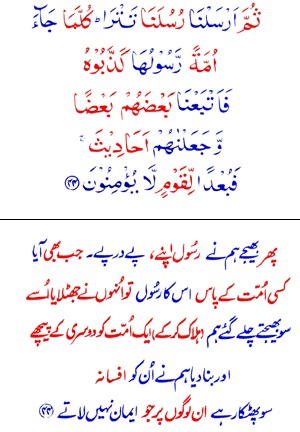 ثُمَّ اَرْسَلْنَا رُسُلَنَا تَتْرَا ؕ كُلَّمَا جَآءَ
اُمَّةً رَّسُوْلُهَا كَذَّبُوْهُ
فَاَتْبَعْنَا بَعْضَهُمْ بَعْضًا
وَّجَعَلْنٰهُمْ اَحَادِيْثَ ۚ
فَبُعْدًا لِّقَوْمٍ لَّا يُؤْمِنُوْنَ ﴿۴۴﴾
پھر بھیجے ہم نے رسُول اپنے، پے در پے۔ جب بھی آیا
کسی اُمّت کے پاس اس کا رسُول تو اُنہوں نے جھٹلایا اُسے
سو بھیجتے چلے گئے ہم (ہلاک کر کے) ایک اُمّت کو دوسری کے پیچھے
اور بنا دیا ہم نے اُن کو افسانہ
سو پھٹکار ہے ان لوگوں پر جو ایمان نہیں لاتے ﴿۴۴﴾